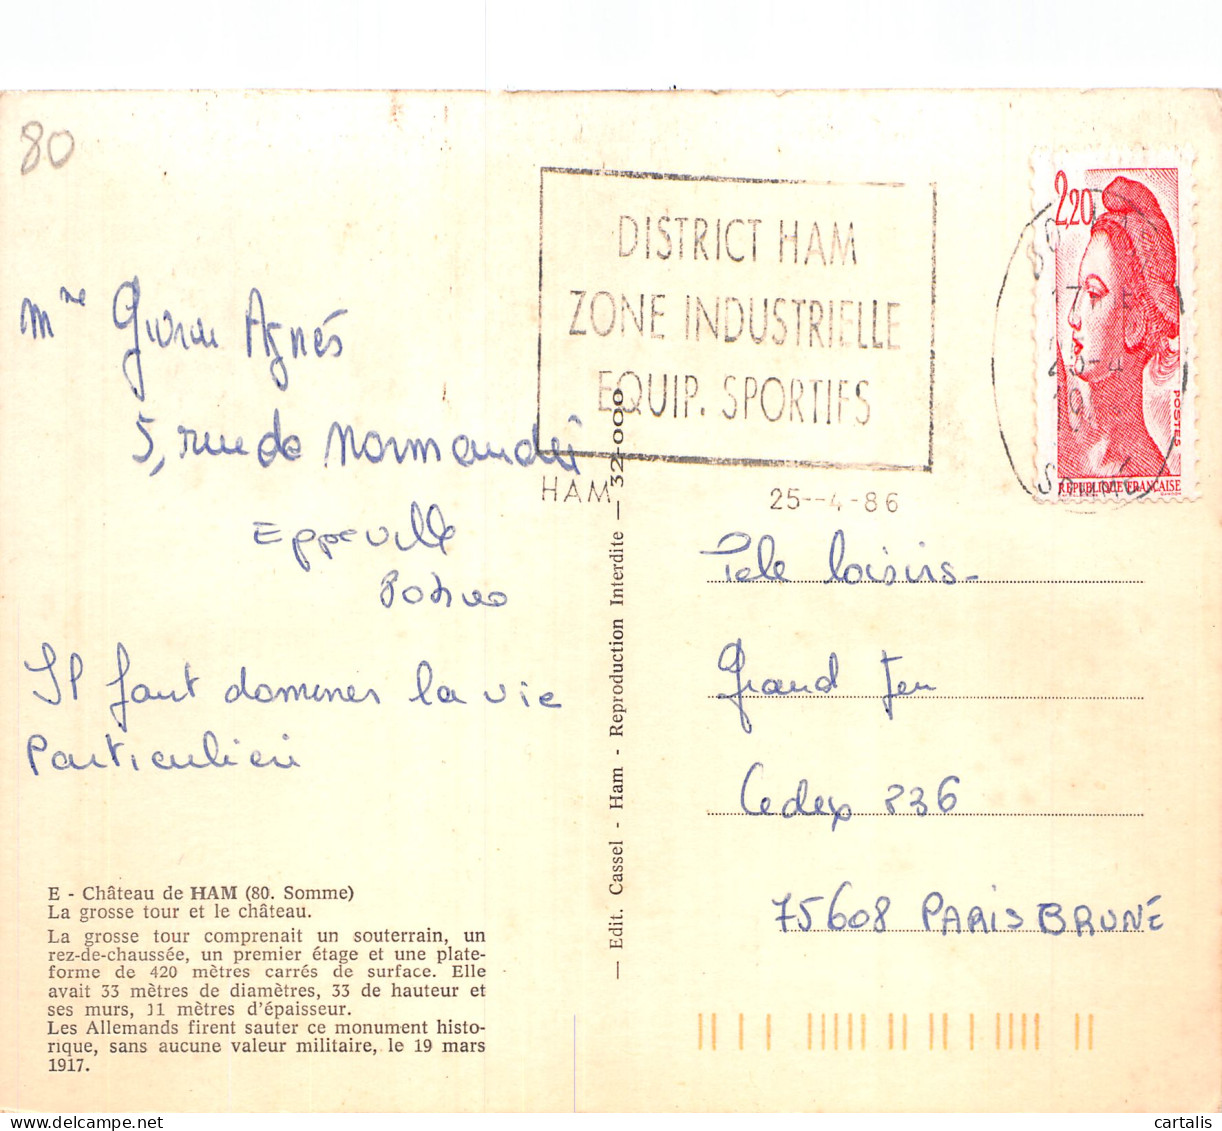 80
DISTRICT HAM
ZONE INDUSTRIELLE
EQUIP. SPORTIFS
HAM
25--4-86
2,20
POSTES
REPUBLIQUE FRANÇAISE
Mme Agnés
5, rue de Normandei
Eppeville
Il faut dominer la vie
Particulieri
Tele loisirs-
Grand Jeu
Cedex 236
75608 PARIS BRUNE
— Edit. Cassel - Ham - Reproduction Interdite — 32-000
E - Château de HAM (80. Somme)
La grosse tour et le château.
La grosse tour comprenait un souterrain, un
rez-de-chaussée, un premier étage et une plate-
forme de 420 mètres carrés de surface. Elle
avait 33 mètres de diamètres, 33 de hauteur et
ses murs, 11 mètres d'épaisseur.
Les Allemands firent sauter ce monument histo-
rique, sans aucune valeur militaire, le 19 mars
1917.
cartalis